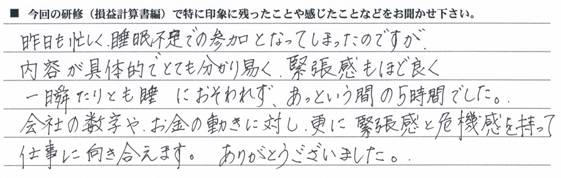 ■ 今回の研修（損益計算書編）で特に印象に残ったことや感じたことなどをお聞かせ下さい。
昨日も忙しく、睡眠不足での参加となってしまったのですが、
内容が具体的でとても分かり易く、緊張感もほど良く
一瞬たりとも睡 におそわれず、あっという間の5時間でした。
会社の数字や、お金の動きに対し、更に緊張感と危機感を持って
仕事に向き合えます。 ありがとうございました。